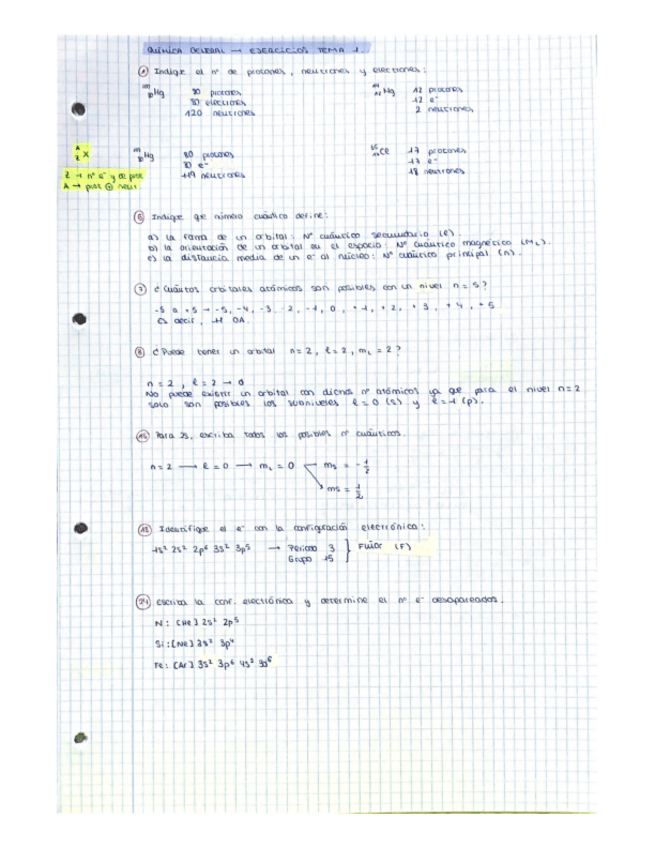 QUÍMICA GENERAL → EJERCICIOS TEMA 1.
① Indique el nº de protones, neutrones y electrones:
Hg 80 protones
80 electrones
120 neutrones
Mg 12 protones
12 e⁻
2 neutrones
A
Z X
Z → nº e⁻ y de prot
A → prot ⊕ neut
Hg 80 protones
80 e⁻
119 neutrones
Cl 17 protones
17 e⁻
18 neutrones
⑥ Indique que número cuántico define:
a) la forma de un orbital: Nº cuántico secundario (l).
b) la orientación de un orbital en el espacio: Nº cuántico magnético (mL).
c) la distancia media de un e⁻ al núcleo: Nº cuántico principal (n).
⑦ ¿Cuántos orbitales atómicos son posibles con un nivel n = 5?
-5 a +5 → -5, -4, -3, -2, -1, 0, +1, +2, +3, +4, +5
Es decir, 11 OA.
⑧ ¿Puede tener un orbital n=2, l=2, mL=2?
n=2, l=2 → 0
No puede existir un orbital con dichos nº atómicos ya que para el nivel n=2
solo son posibles los subniveles l=0 (s) y l=1 (p).
Para 2s, escriba todos los posibles nº cuánticos.
n=2 → l=0 → mL=0 ms = -1/2
ms = 1/2
Identifique el e⁻ con la configuración electrónica:
1s² 2s² 2p⁶ 3s² 3p⁵ → Periodo 3 } Flúor (F)
Grupo 15
㉔ Escriba la conf. electrónica y determine el nº e⁻ desapareados.
N: [He] 2s² 2p⁵
Si: [Ne] 3s² 3p⁴
Fe: [Ar] 3s² 3p⁶ 4s² 3d⁶